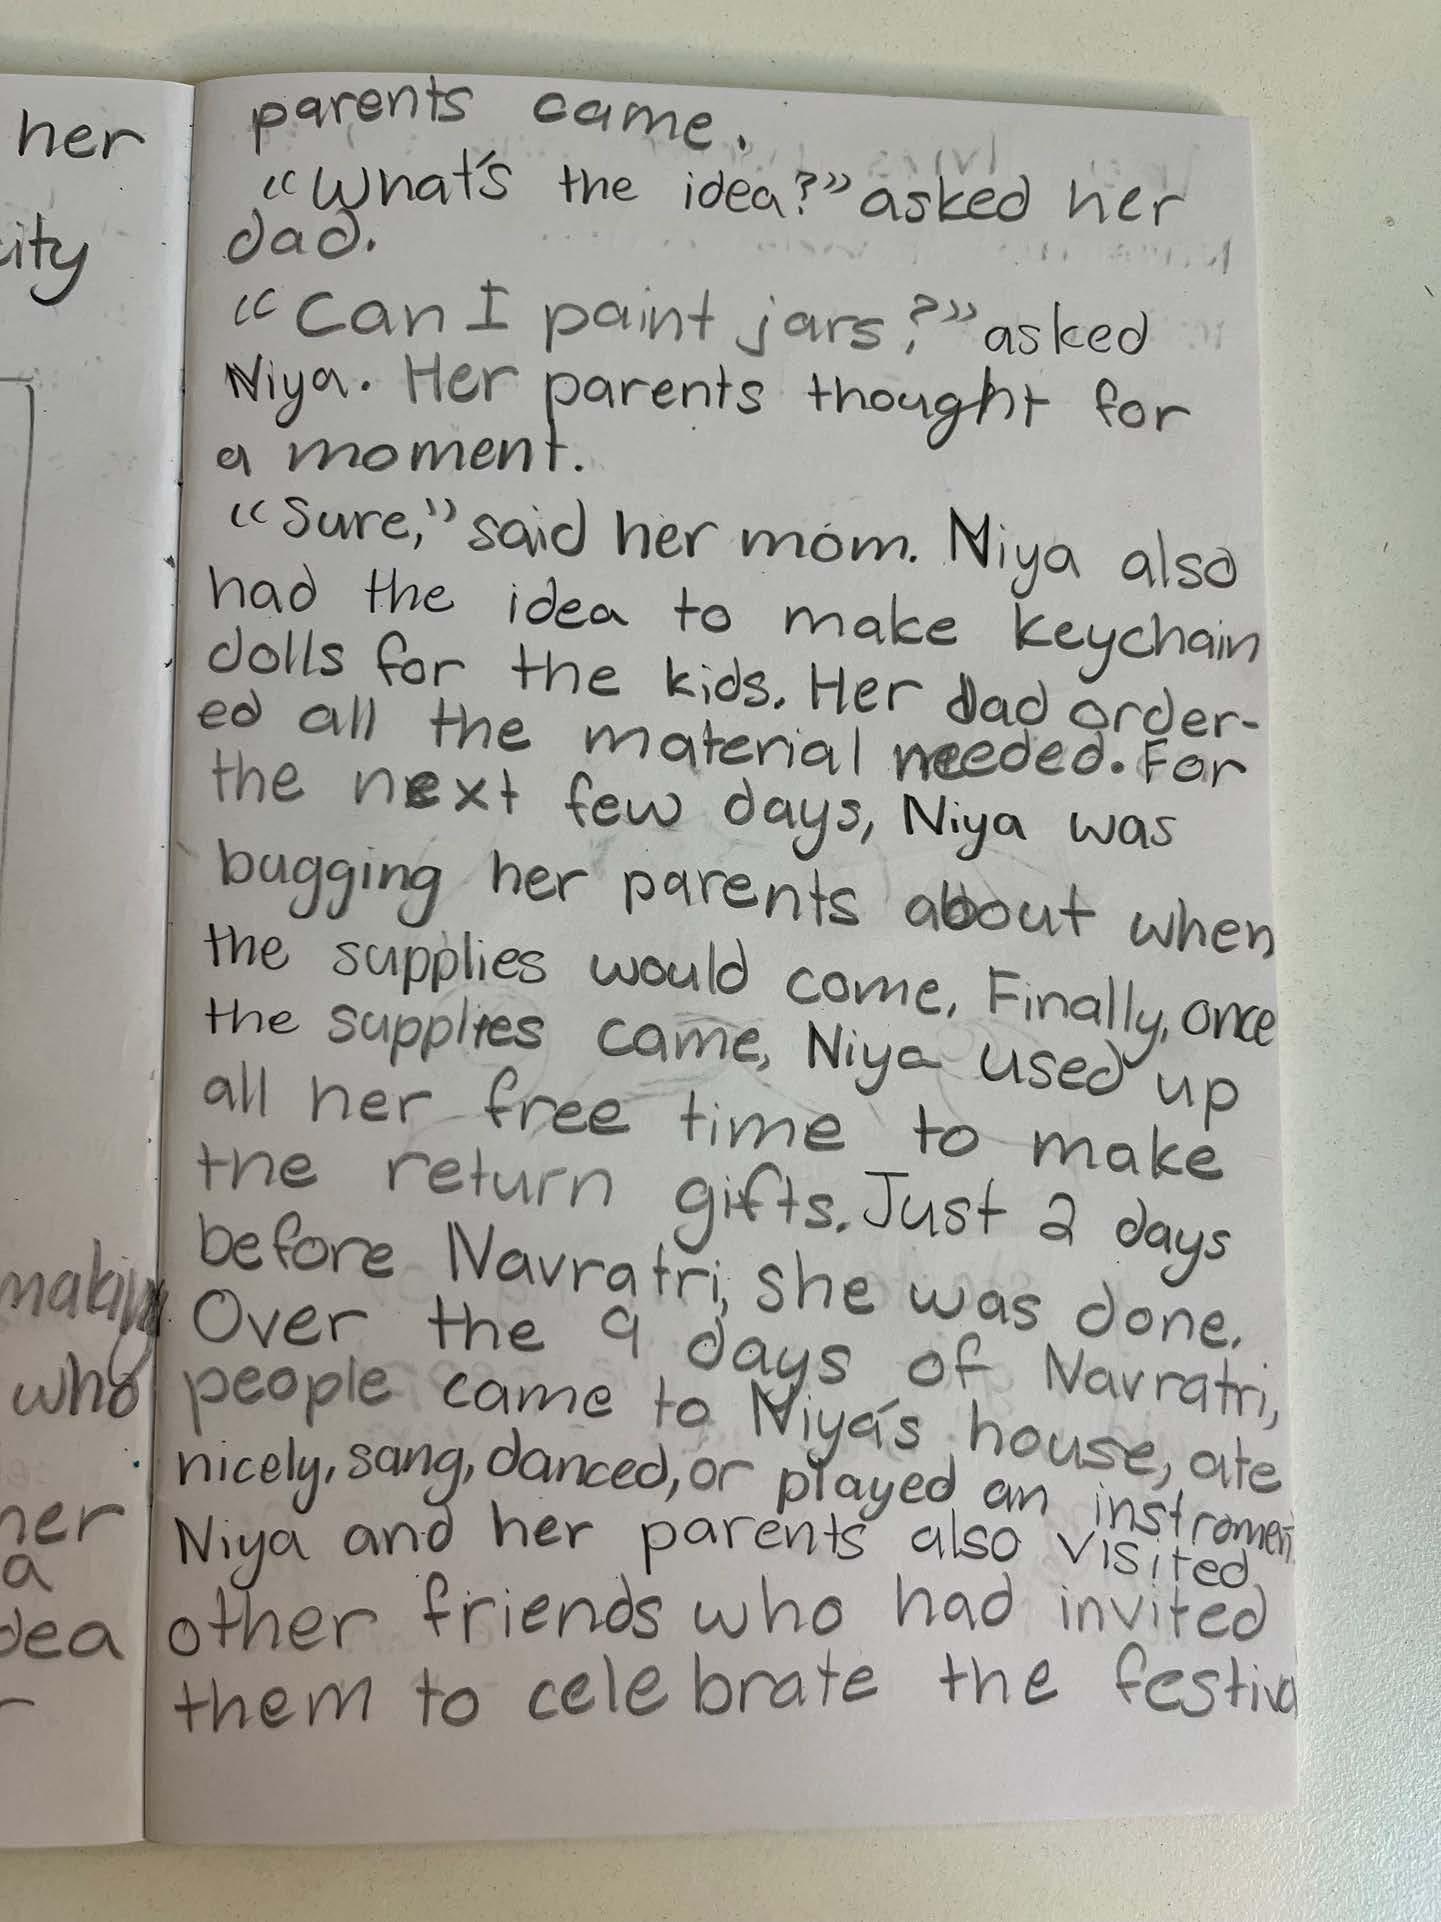 her
city
making
who
her
a
idea
parents came.
"What's the idea?" asked her
dad.
"Can I paint jars?" asked
Niya. Her parents thought for
a moment.
"Sure," said her mom. Niya also
had the idea to make keychain
dolls for the kids. Her dad order-
ed all the material needed. For
the next few days, Niya was
bugging her parents about when
the supplies would come. Finally, once
the supplies came, Niya used up
all her free time to make
the return gifts. Just 2 days
before Navratri, she was done.
Over the 9 days of Navratri,
people came to Niya's house, ate
nicely, sang, danced, or played an instromen
Niya and her parents also visited
other friends who had invited
them to celebrate the festiva